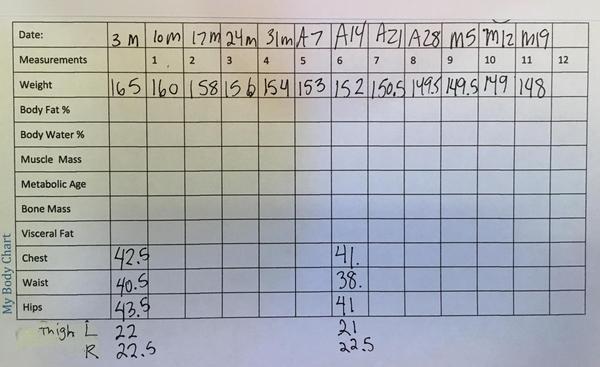 Date: 3 M 10m 17m 24m 31m A7 A14 A21 A28 M5 M12 M19
Measurements 1 2 3 4 5 6 7 8 9 10 11 12
Weight 165 160 158 156 154 153 152 150.5 149.5 149.5 149 148
Body Fat %
Body Water %
Muscle Mass
Metabolic Age
Bone Mass
Visceral Fat
Chest 42.5 41.
Waist 40.5 38.
Hips 43.5 41
Thigh L 22 21
R 22.5 22.5
My Body Chart